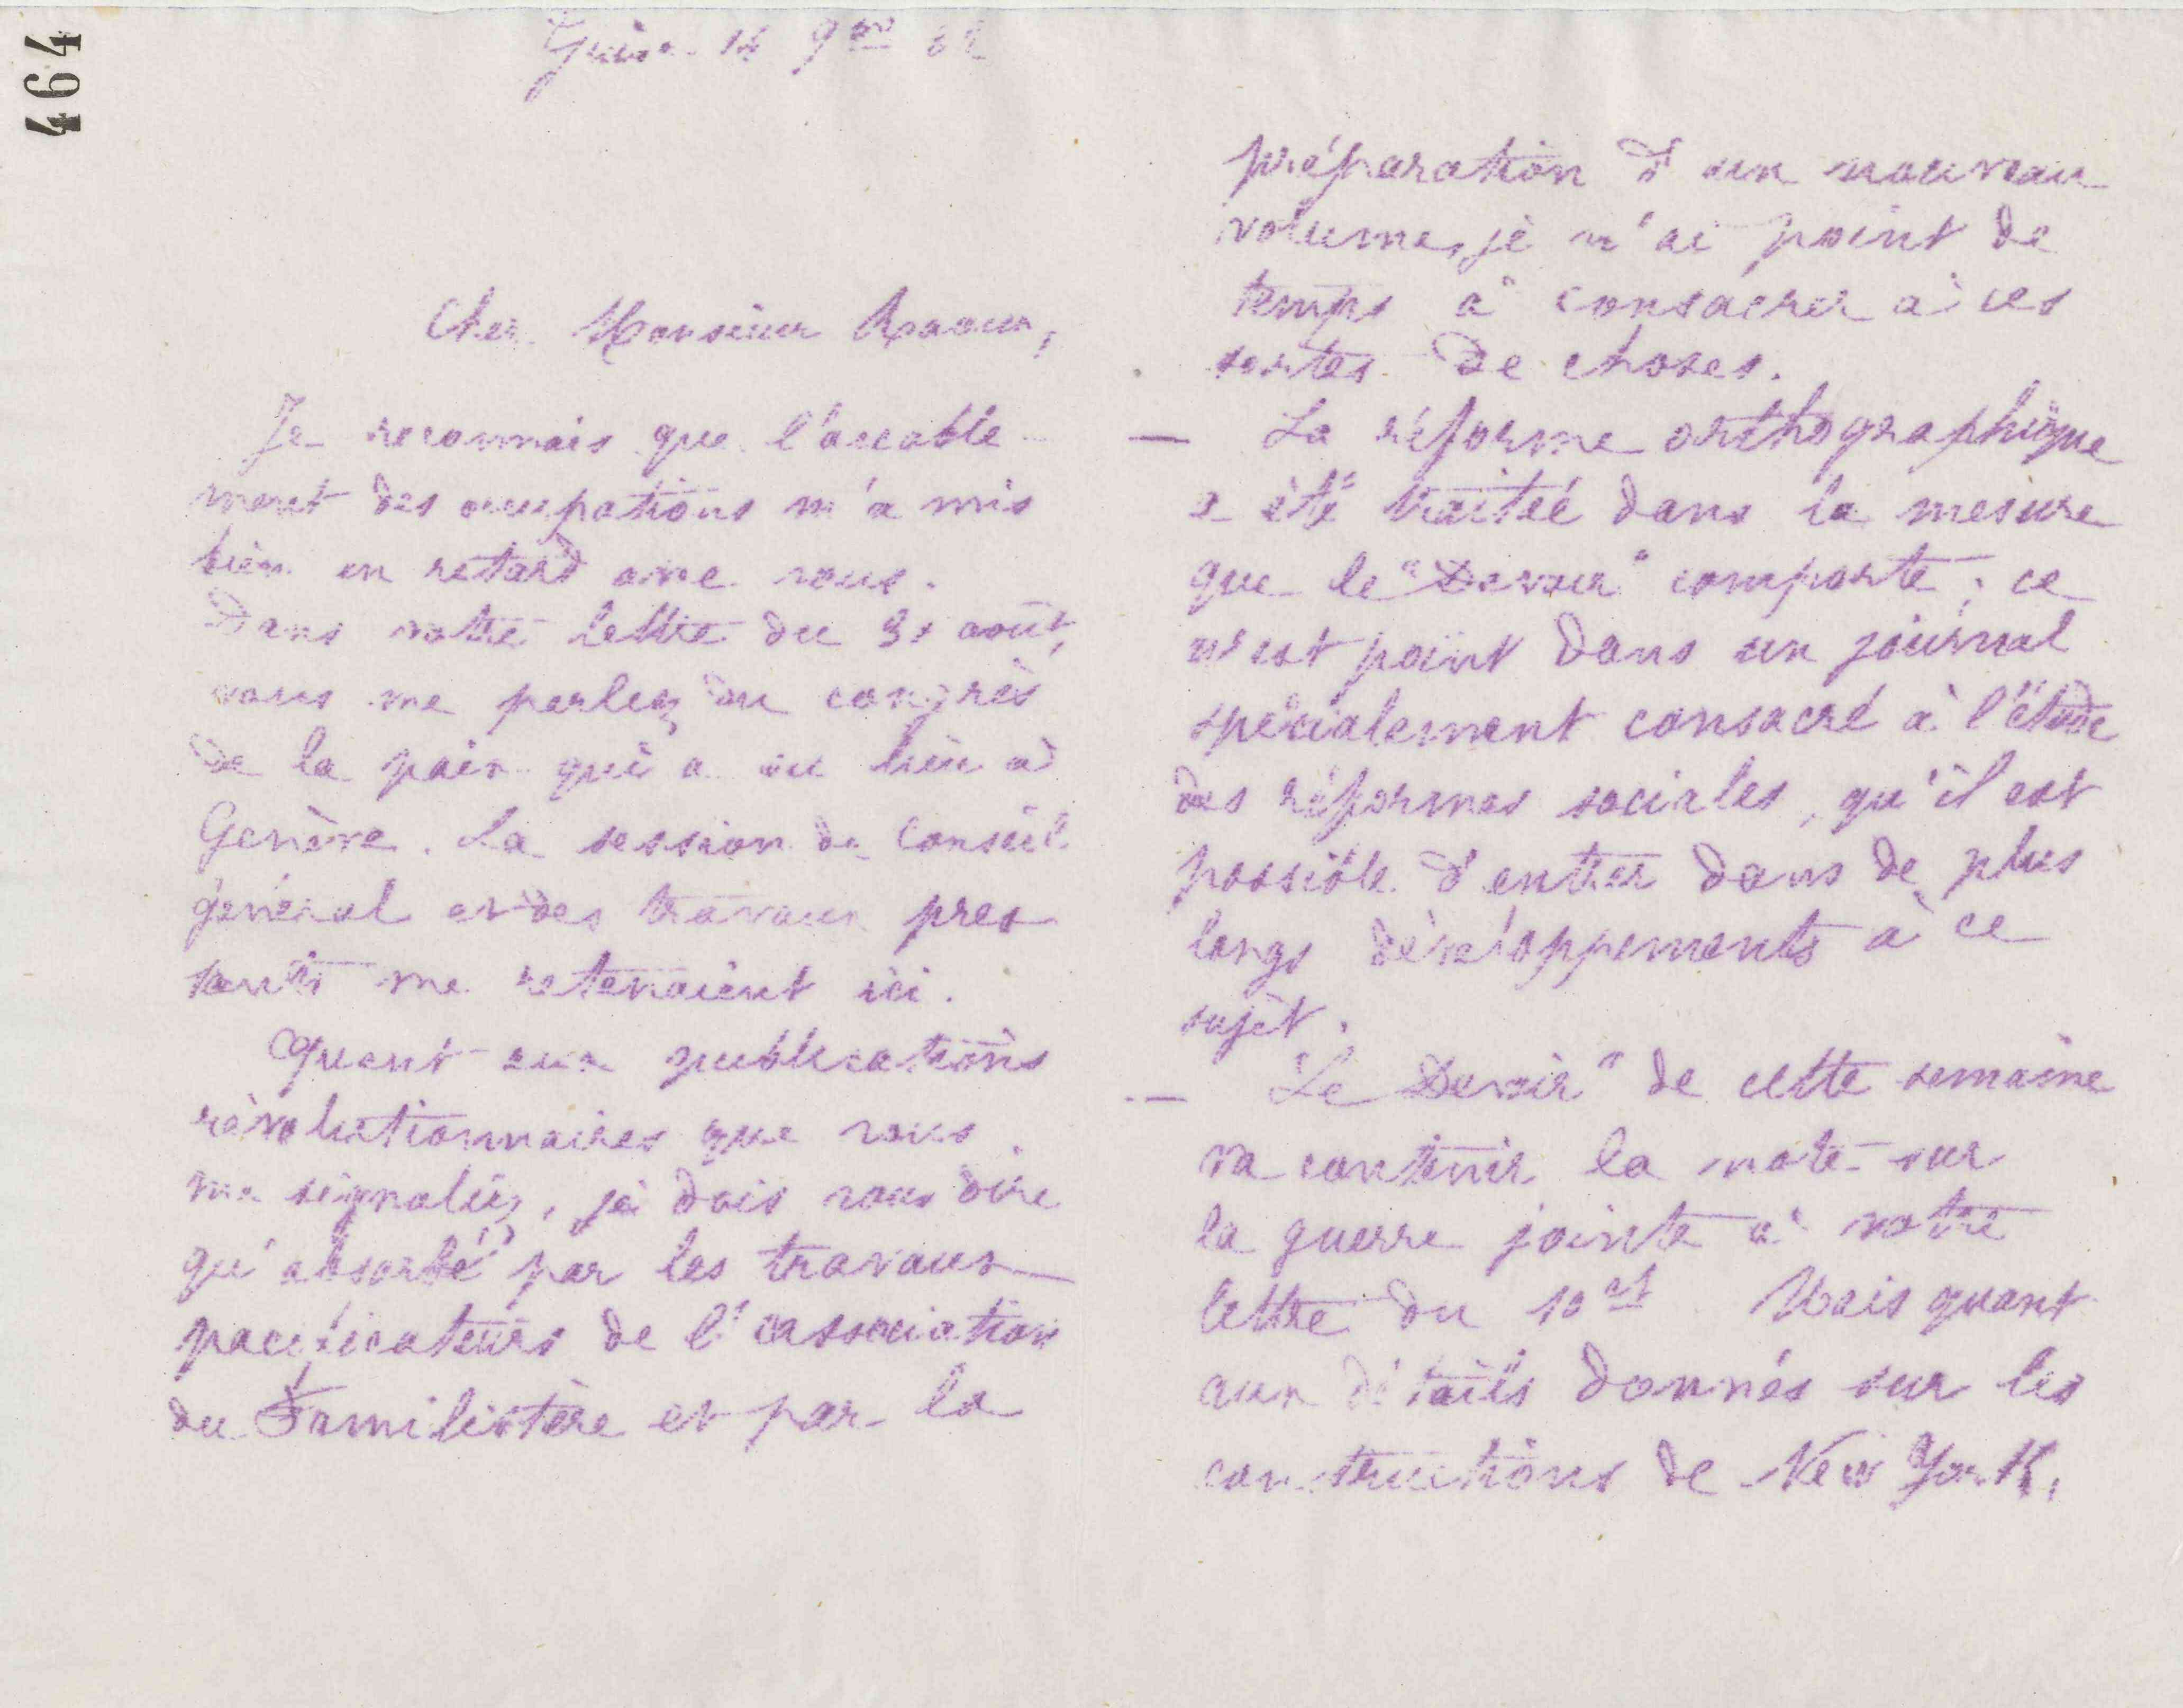 464
Guise 14 9bre 82
Cher Monsieur Raoux,
Je reconnais que l'accable
ment des occupations m'a mis
bien en retard avec vous.
Dans votre lettre du 31 août,
vous me parlez du congrès
de la paix qui a eu lieu à
Genève. La session du Conseil
général et des travaux pres
sants me retenaient ici.
Quant aux publications
révolutionnaires que vous
me signalez, je dois vous dire
qu'absorbé par les travaux
pacificateurs de l'association
du Familistère et par la
préparation d'un nouveau
volume, je n'ai point de
temps à consacrer à ces
sortes de choses.
— La réforme orthographique
a été traitée dans la mesure
que le "Devoir" comporte ; ce
n'est point dans un journal
spécialement consacré à l'étude
des réformes sociales, qu'il est
possible d'entrer dans de plus
longs développements à ce
sujet.
— "Le Devoir" de cette semaine
va contenir la note sur
la guerre jointe à votre
lettre du 10 ct. Mais quant
aux détails donnés sur les
constructions de New York,